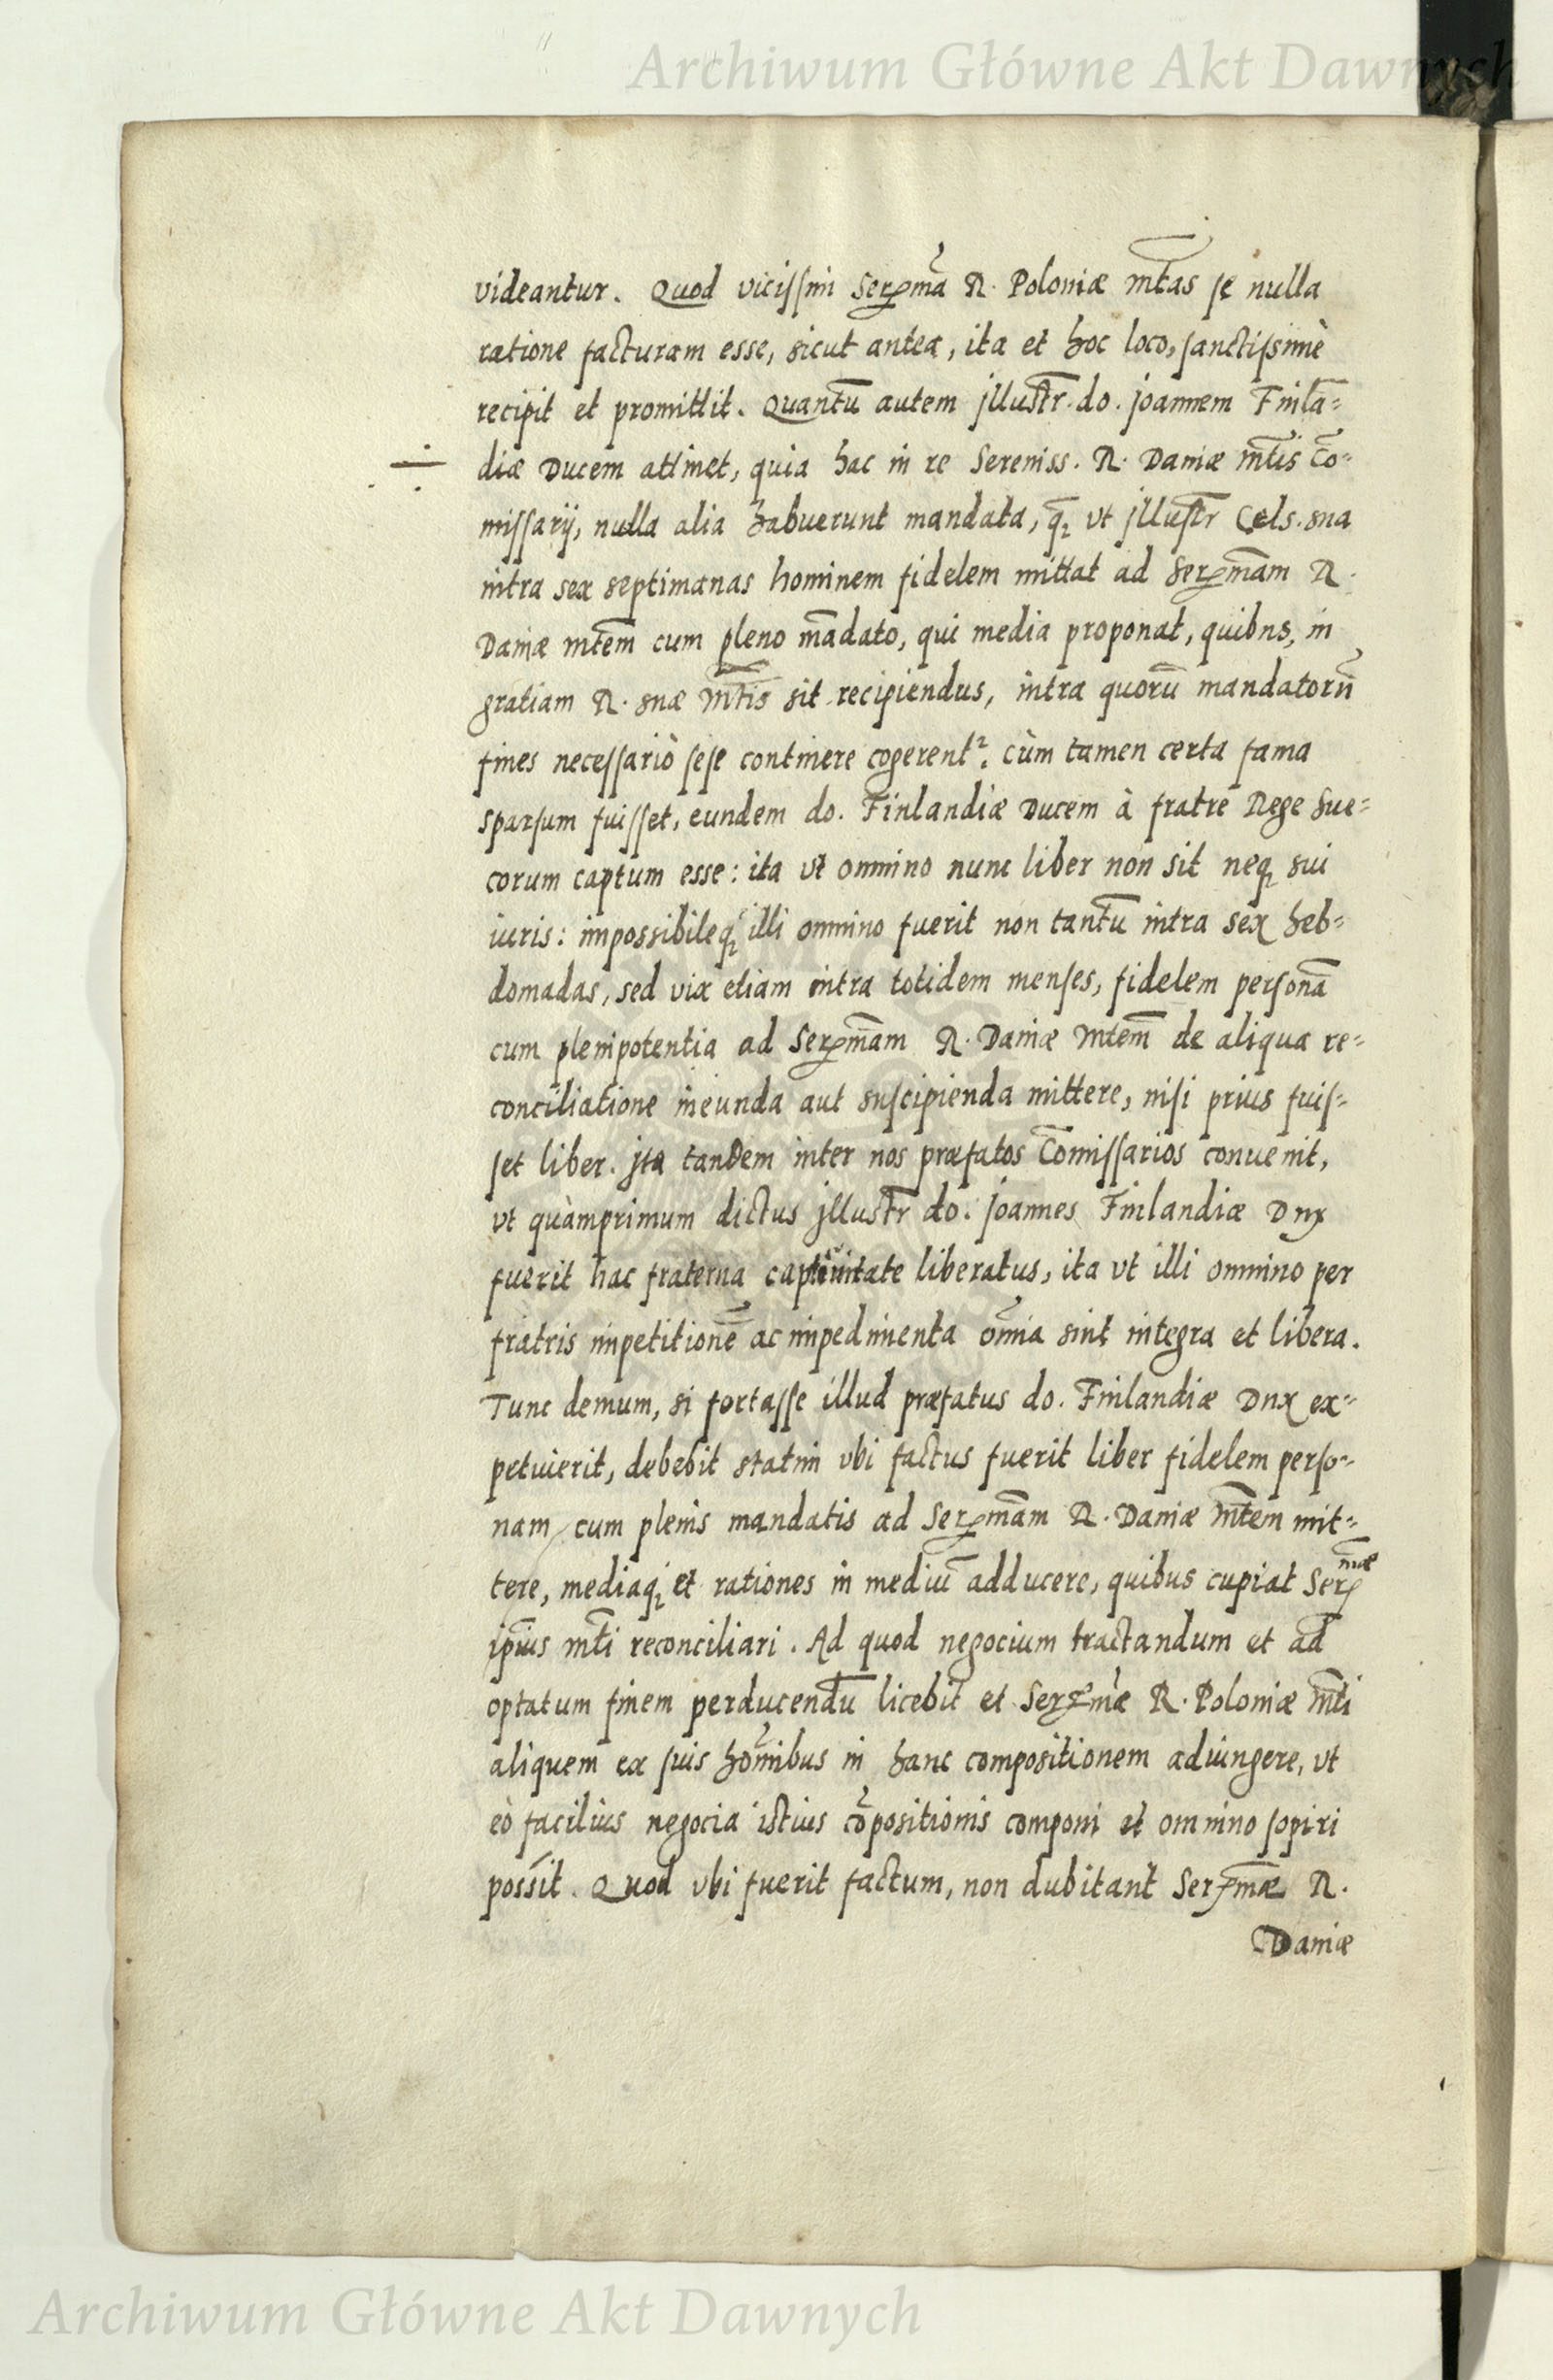 Archiwum Główne Akt Dawnych
videantur. Quod vicissim Serꝑma R. Poloniæ mtas se nulla
ratione facturam esse, sicut antea, ita et hoc loco, sanctissimè
recipit et promittit. Quantū autem jllustr. do. joannem Finlā=
diæ Ducem attinet, quia hac in re Sereniss. R. Daniæ mtis Cō=
missarij, nulla alia habuerunt mandata, q̄ꝫ vt jllustr Cels. sua
intra sex septimanas hominem fidelem mittat ad Serꝑmam R.
Daniæ mtem cum pleno mādato, qui media proponat, quibus, in
gratiam R. suæ mtis sit recipiendus, intra quorū mandatorū
fines necessariò sese continere cogerentᷣ. Cùm tamen certa fama
sparsum fuisset, eundem do. Finlandiæ Ducem à fratre Rege Sue=
corum captum esse: ita vt omnino nunc liber non sit neqꝫ sui
iuris: impossibileqꝫ illi omnino fuerit non tantū intra sex heb=
domadas, sed vix etiam intra totidem menses, fidelem personā
cum plenipotentia ad Serꝑmam R. Daniæ mtem de aliqua re=
conciliatione ineunda aut suscipienda mittere, nisi prius fuis=
set liber. jta tandem inter nos præfatos Cōmissarios convenit,
vt quàmprimum dictus jllustr do. joannes Finlandiæ Dux
fuerit hac fraterna captiuitate liberatus, ita vt illi omnino per
fratris impetitionē ac impedimenta om̄ia sint integra et libera.
Tunc demum, si fortasse illud præfatus do. Finlandiæ Dux ex=
petiuerit, debebit statim vbi factus fuerit liber fidelem perso=
nam cum plenis mandatis ad Serꝑmam R. Daniæ mtem mit=
tere, mediaqꝫ et rationes in mediū adducere, quibus cupiat Serꝑmæ
ipīus mti reconciliari. Ad quod negocium tractandum et ad
optatum finem perducendū licebit et Serꝑmæ R. Poloniæ mti
aliquem ex suis hom̄ibus in hanc compositionem adiungere, vt
eò facilius negocia istius cōpositionis componi et omnino sopiri
possīt. Quod vbi fuerit factum, non dubitant Serꝑmæ R.
Daniæ
Archiwum Główne Akt Dawnych